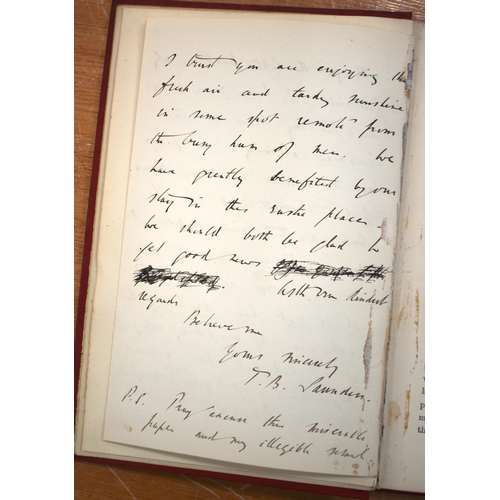 I trust you are enjoying the
fresh air and tardy sunshine
in some spot remote from
the busy hum of men. We
have greatly benefited by our
stay in this rustic place –
We should both be glad to
get good news
With our kindest
regards
Believe me
Yours sincerely
T. B. Saunders.
P.S. Pray excuse this miserable
paper and my illegible